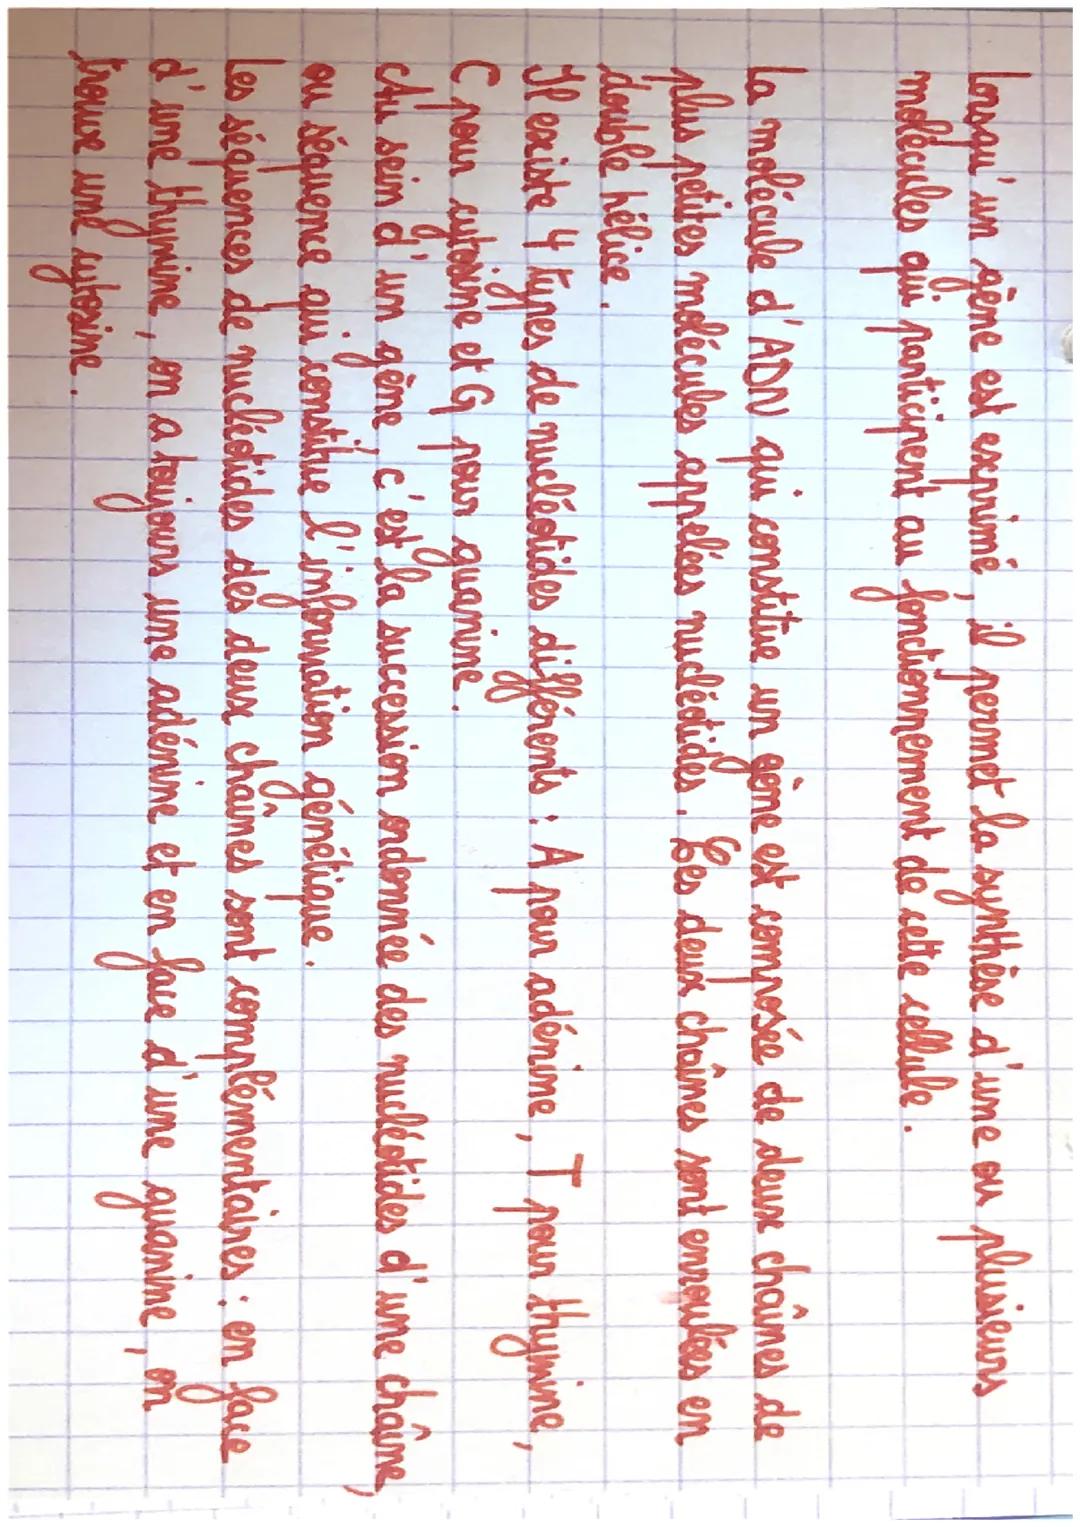 Lorsqu'un gène est exprimé, il permet la synthèse d'une ou plusieurs
molécules qui participent au fonctionnement de cette cellule.
La molécule d'ADN qui constitue un gène est composée de deux chaînes de
plus petites molécules appelées nucléotides. Les deux chaînes sont enroulées en
double hélice.
Il existe 4 types de nucléotides différents : A pour adénine, T pour thymine,
C pour cytosine et G pour guanine.
Au sein d'un gène, c'est la succession ordonnée des nucléotides d'une chaîne,
ou séquence qui constitue l'information génétique.
Les séquences de nucléotides des deux chaînes sont complémentaires : en face
d'une thymine, on a toujours une adénine et en face d'une guanine, on
trouve une cytosine.